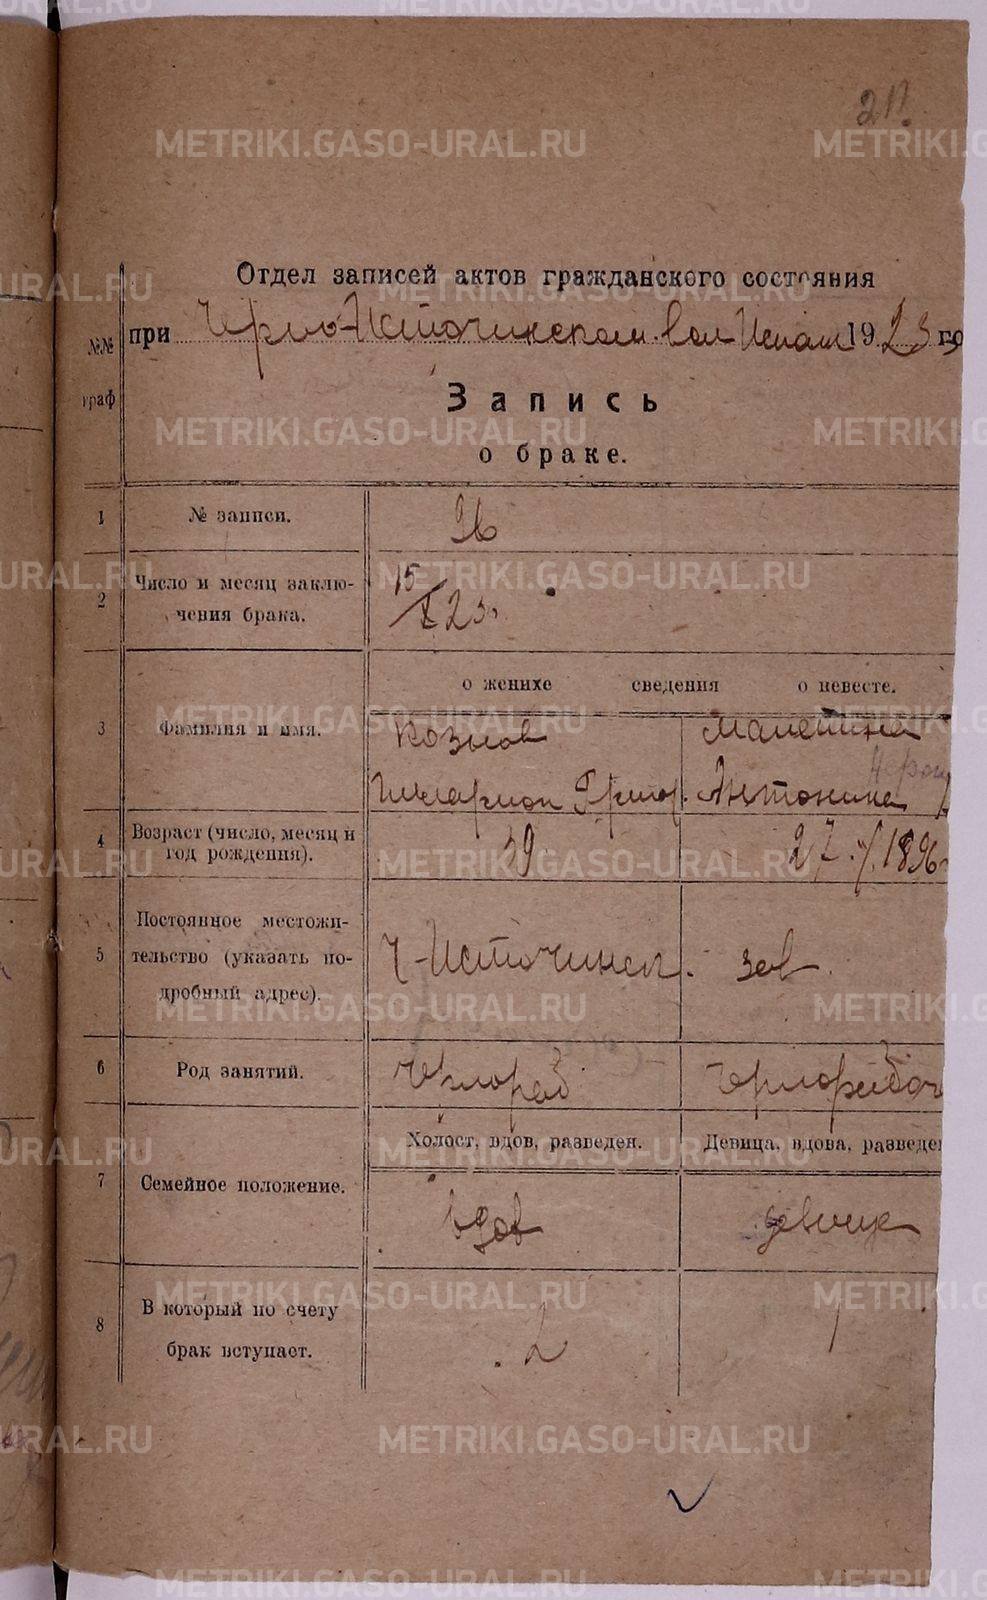 211.
Отдел записей актов гражданского состояния
при Черно-Источинском. вол Исполк 1923 го
№№ граф
Запись
о браке.
1 № записи. 96
2 Число и месяц заклю-
чения брака. 15/X 23.
о женихе сведения о невесте.
3 Фамилия и имя. Козлов
Илларион Григор. Антонина
4 Возраст (число, месяц и
год рождения). 39 27 1896
5 Постоянное местожи-
тельство (указать по-
дробный адрес). Ч-Источинск. зав.
6 Род занятий. Чернораб Чернорабоч
Холост, вдов, разведен. Девица, вдова, разведен
7 Семейное положение. вдов девица
8 В который по счету
брак вступает. 2 1
METRIKI.GASO-URAL.RU